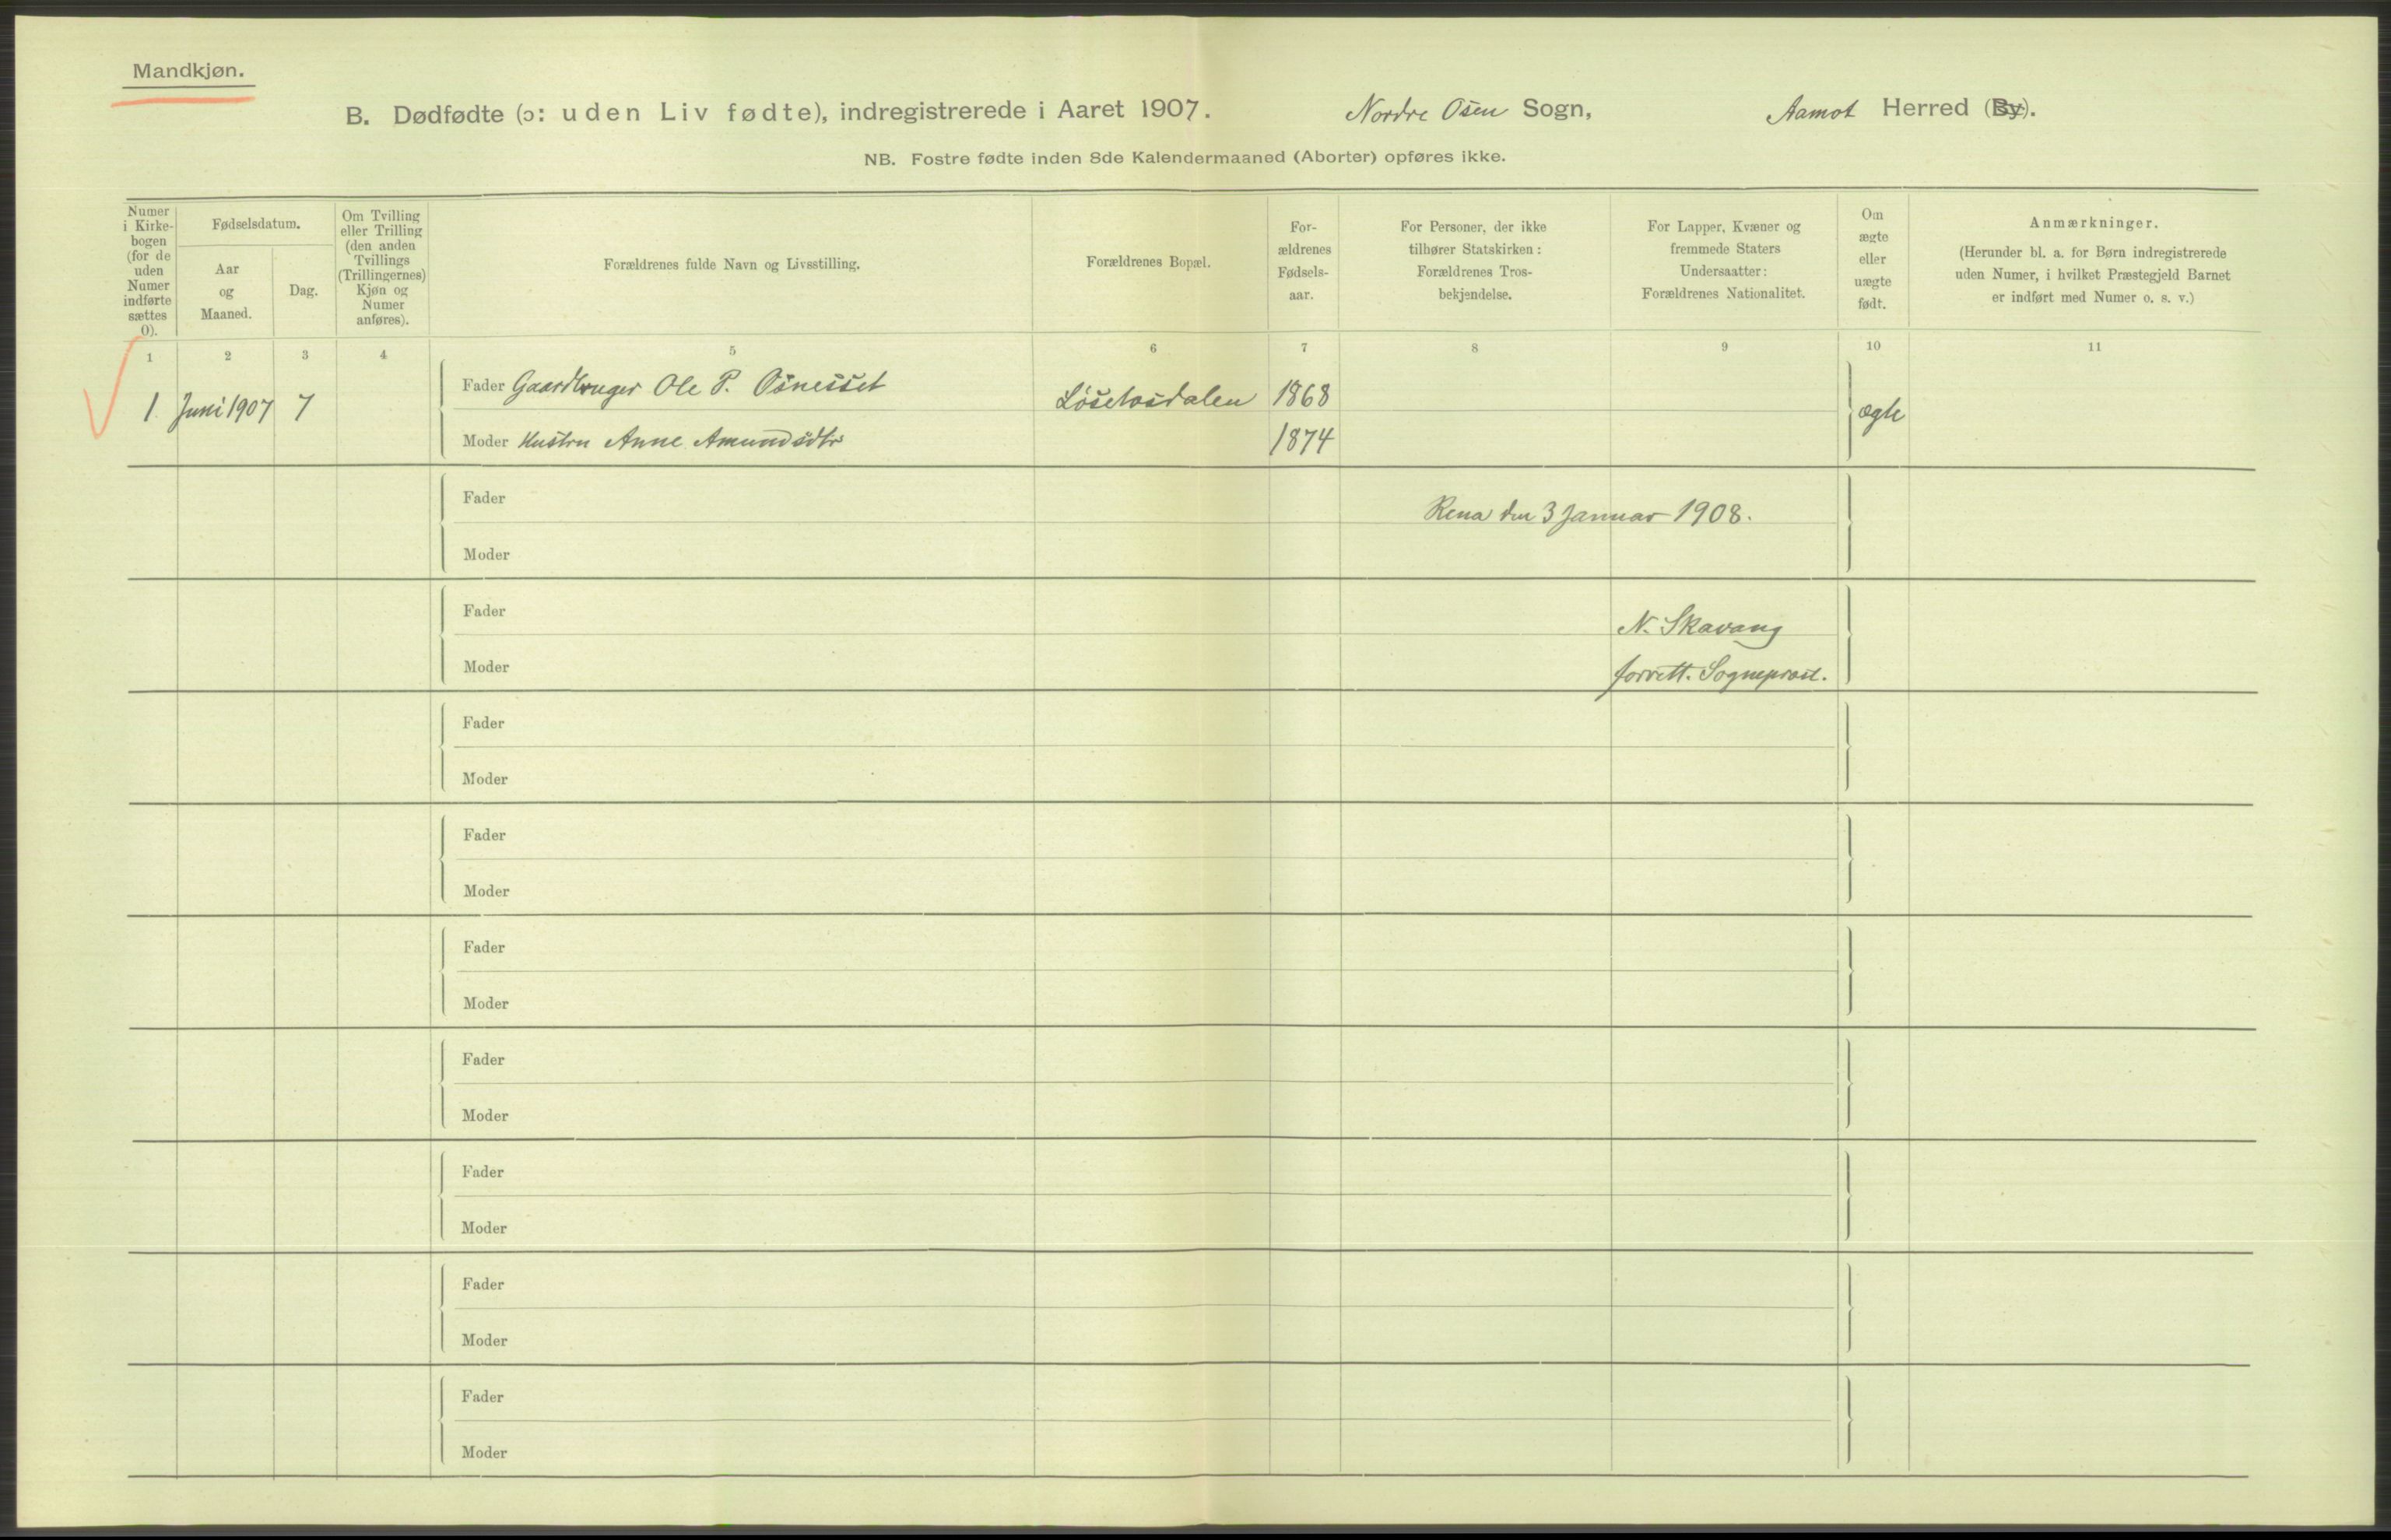 Mandkjøn.
B. Dødfødte (ɔ: uden Liv fødte), indregistrerede i Aaret 1907. Nordre Osen Sogn, Aamot Herred (By).
NB. Fostre fødte inden 8de Kalendermaaned (Aborter) opføres ikke.
Numer
i Kirke-
bogen
(for de
uden
Numer
indførte
sættes
0).
Fødselsdatum.
Aar
og
Maaned.
Dag.
Om Tvilling
eller Trilling
(den anden
Tvillings
(Trillingernes)
Kjøn og
Numer
anføres).
Forældrenes fulde Navn og Livsstilling.
Forældrenes Bopæl.
For-
ældrenes
Fødsels-
aar.
For Personer, der ikke
tilhører Statskirken:
Forældrenes Tros-
bekjendelse.
For Lapper, Kvæner og
fremmede Staters
Undersaatter:
Forældrenes Nationalitet.
Om
ægte
eller
uægte
født.
Anmærkninger.
(Herunder bl. a. for Børn indregistrerede
uden Numer, i hvilket Præstegjeld Barnet
er indført med Numer o. s. v.)
1 2 3 4 5 6 7 8 9 10 11
1. Juni 1907 7 Fader Gaardbruger Ole P. Osnesset Løsetosdalen 1868 ægte
Moder Hustru Anne Amundsdtr 1874
Fader
Rena den 3 Januar 1908.
Moder
Fader
N. Skavang
Moder
forrett. Sogneprest.
Fader
Moder
Fader
Moder
Fader
Moder
Fader
Moder
Fader
Moder
Fader
Moder
Fader
Moder